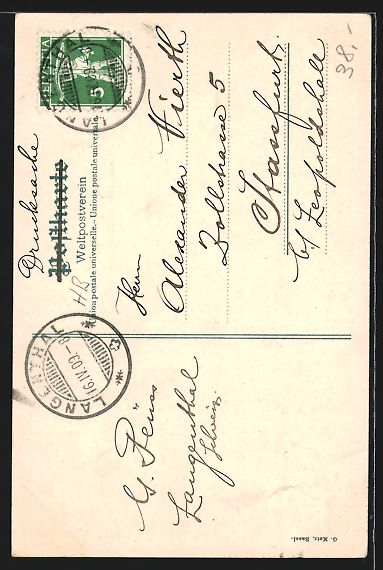 Drucksache
Postkarte
Weltpostverein
Union postale universelle. - Unione postale universale.
HELVETIA
5
LANGENTHAL
16.IV.09-8
Herrn
Alexander Vierth
Zollstrasse 5
Stassfurt
b/ Leopoldshall
G. Metz, Basel.
Langenthal
Schweiz
38,-
HB